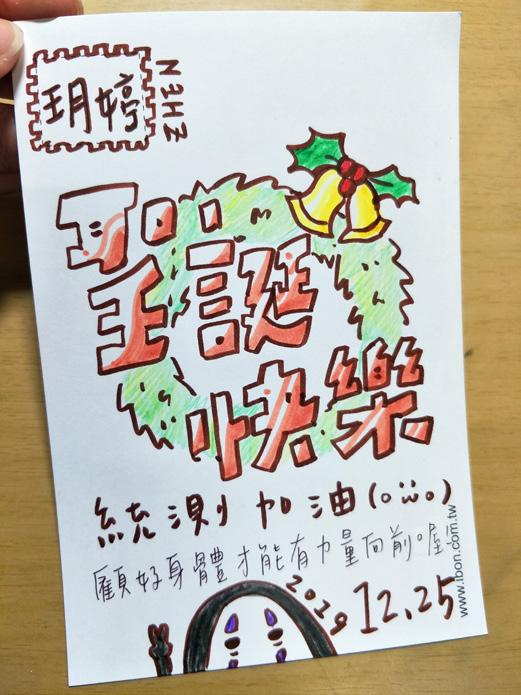 玥婷
NEHZ
聖誕
快樂
統測加油(o¨̮o)
顧好身體才能有力量向前喔
2019 12.25
www.ibon.com.tw